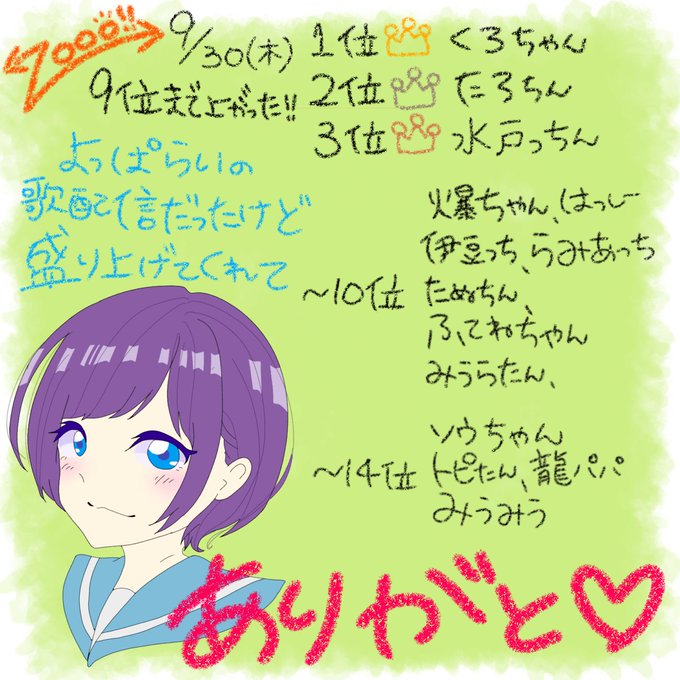 2000!!
9/30(木)
9位まで上がった!!
よっぱらいの
歌配信だったけど
盛り上げてくれて
1位 くろちゃん
2位 たろちん
3位 水戸っちん
火爆ちゃん、はっしー
伊豆っち、らみあっち
~10位 たぬちん、
ふてねちゃん
みうらたん、
ソウちゃん
~14位 トピたん、龍パパ
みうみう
ありがと♡